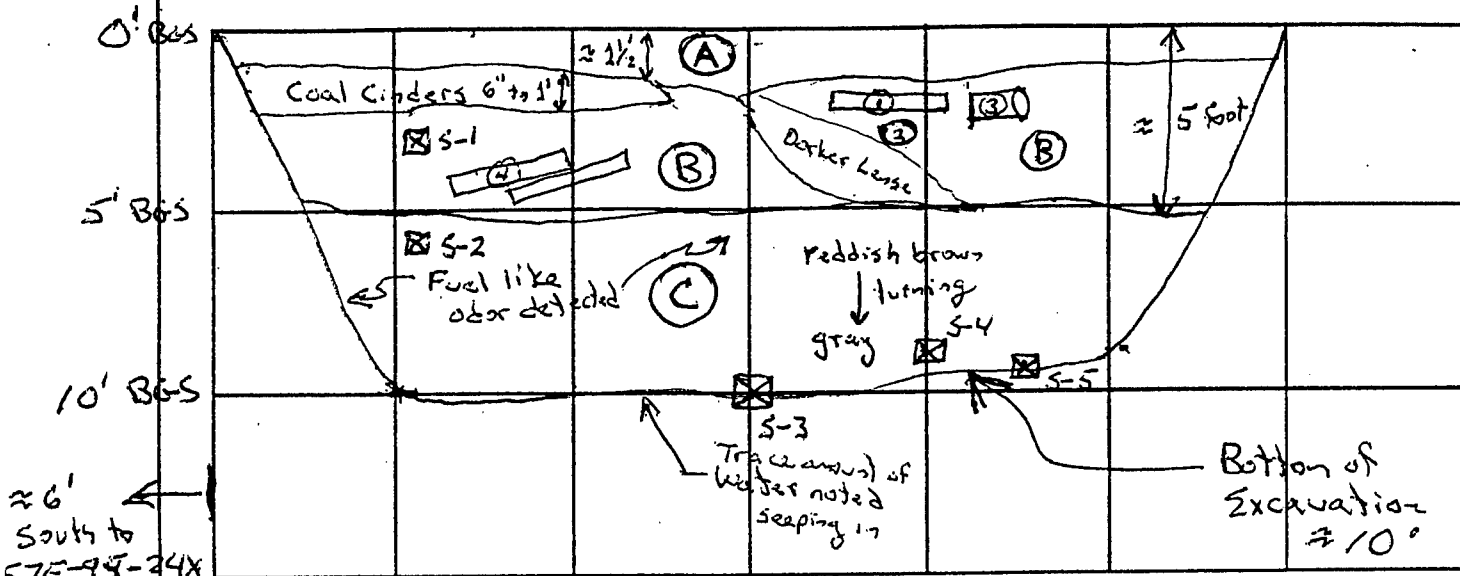 0' BGS
≈ 1½'
A
Coal Cinders 6" to 1'
1
3
≈ 5 foot
S-1
3
B
Darker Lense
4
B
5' BGS
S-2
Fuel like
odor detected
C
reddish brown
turning
gray
S-4
S-5
10' BGS
S-3
Trace amount of
Water noted
seeping in
Bottom of
Excavation
≈ 10'
≈ 6'
South to